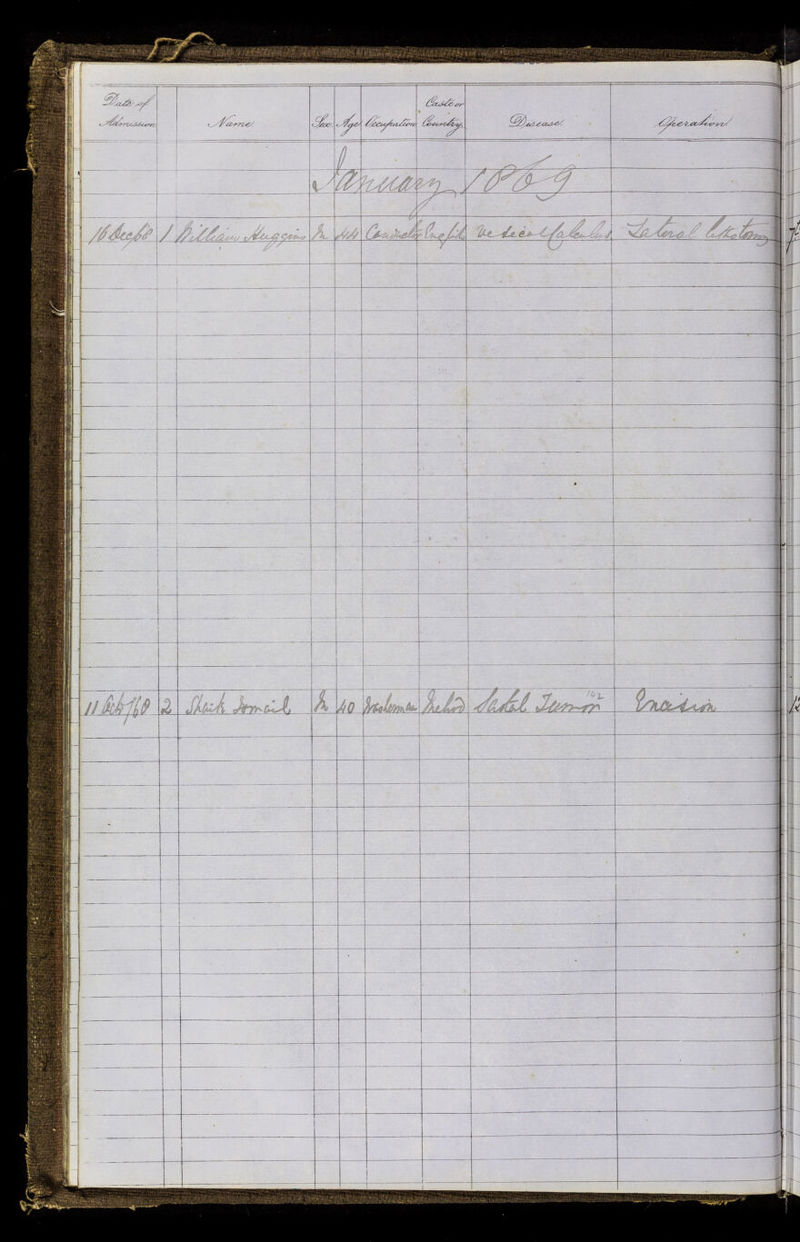 Date of Admission Name Sex Age Occupation Caste or Country Disease Operation
January 1869
16 Dec/68 1 William Huggins M 44 Conductor English Vesical Calculus Lateral lithotomy
11 68 2 Shaik Ismail M 40 Tumor Excision